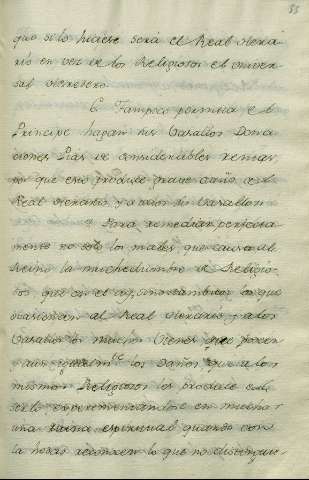 55
que si lo hiciese será el Real herario
rio en vez de los Religiosos el univer
sal heredero.
6 Tampoco permita el
Principe hagan sus Vasallos Dona
ciones Pias de considerables rentas
por que esto produce grave daño a el
Real Herario, y a otros sus Vasallos.
Para remediar perfecta
mente no solo los males, que causa al
Reino la muchedumbre de Religio
sos, que en el ay, sino tambien los que
ocasionan al Real Herario, y a los
Vasallos los muchos vienes que poseen
y aun igualmte los Daños que a los
mismos Religiosos les produce el
experimentandose en muchos
una ruina espiritual quando con
la hozas reconocen lo que no distingui-